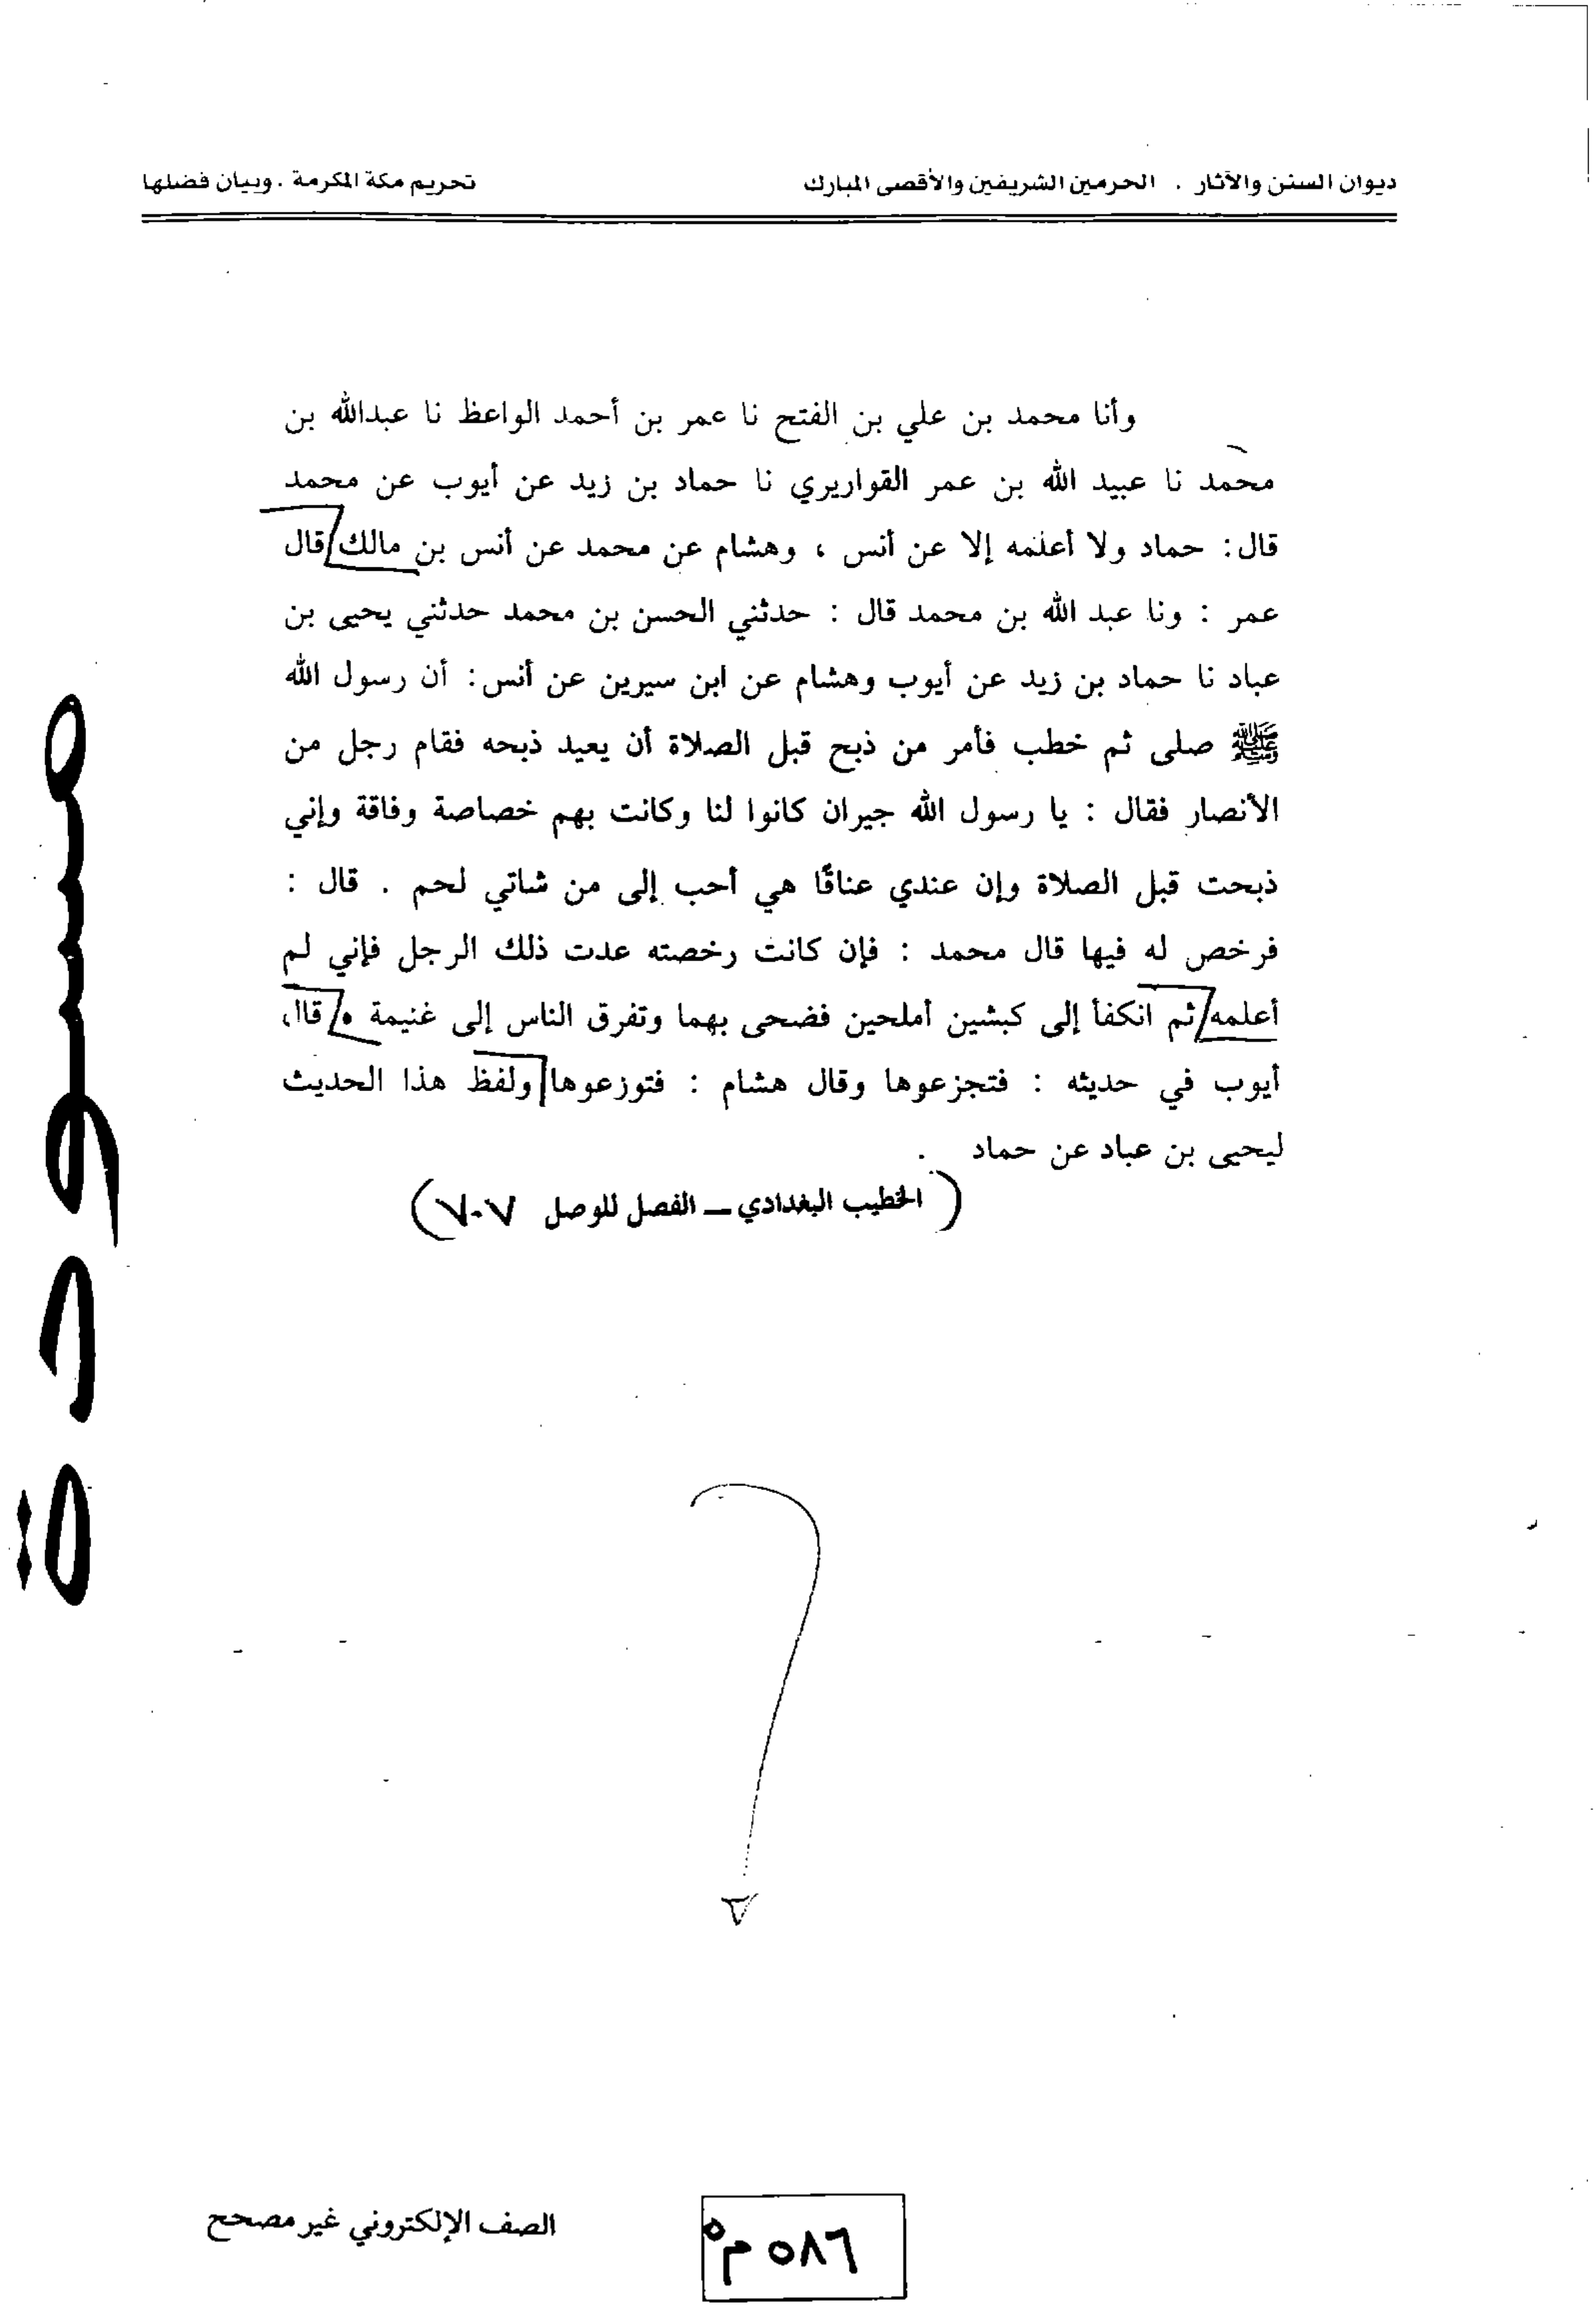 ديوان السنن والآثار . الحرمين الشريفين والأقصى المبارك
تحريم مكة المكرمة . وبيان فضلها
وأنا محمد بن علي بن الفتح نا عمر بن أحمد الواعظ نا عبدالله بن
محمد نا عبيد الله بن عمر القواريري نا حماد بن زيد عن أيوب عن محمد
قال : حماد ولا أعلمه إلا عن أنس ، وهشام عن محمد عن أنس بن مالك قال
عمر : ونا عبد الله بن محمد قال : حدثني الحسن بن محمد حدثني يحيى بن
عباد نا حماد بن زيد عن أيوب وهشام عن ابن سيرين عن أنس : أن رسول الله
ﷺ صلى ثم خطب فأمر من ذبح قبل الصلاة أن يعيد ذبحه فقام رجل من
الأنصار فقال : يا رسول الله جيران كانوا لنا وكانت بهم خصاصة وفاقة وإني
ذبحت قبل الصلاة وإن عندي عناقًا هي أحب إلى من شاتي لحم . قال :
فرخص له فيها قال محمد : فإن كانت رخصته عدت ذلك الرجل فإني لم
أعلمه ثم انكفأ إلى كبشين أملحين فضحى بهما وتفرق الناس إلى غنيمة قال
أيوب في حديثه : فتجزعوها وقال هشام : فتوزعوها ولفظ هذا الحديث
ليحيى بن عباد عن حماد .
( الخطيب البغدادي – الفصل للوصل ٧٠٧ )
مسودة
الصف الإلكتروني غير مصحح
٥٨٦ م٥